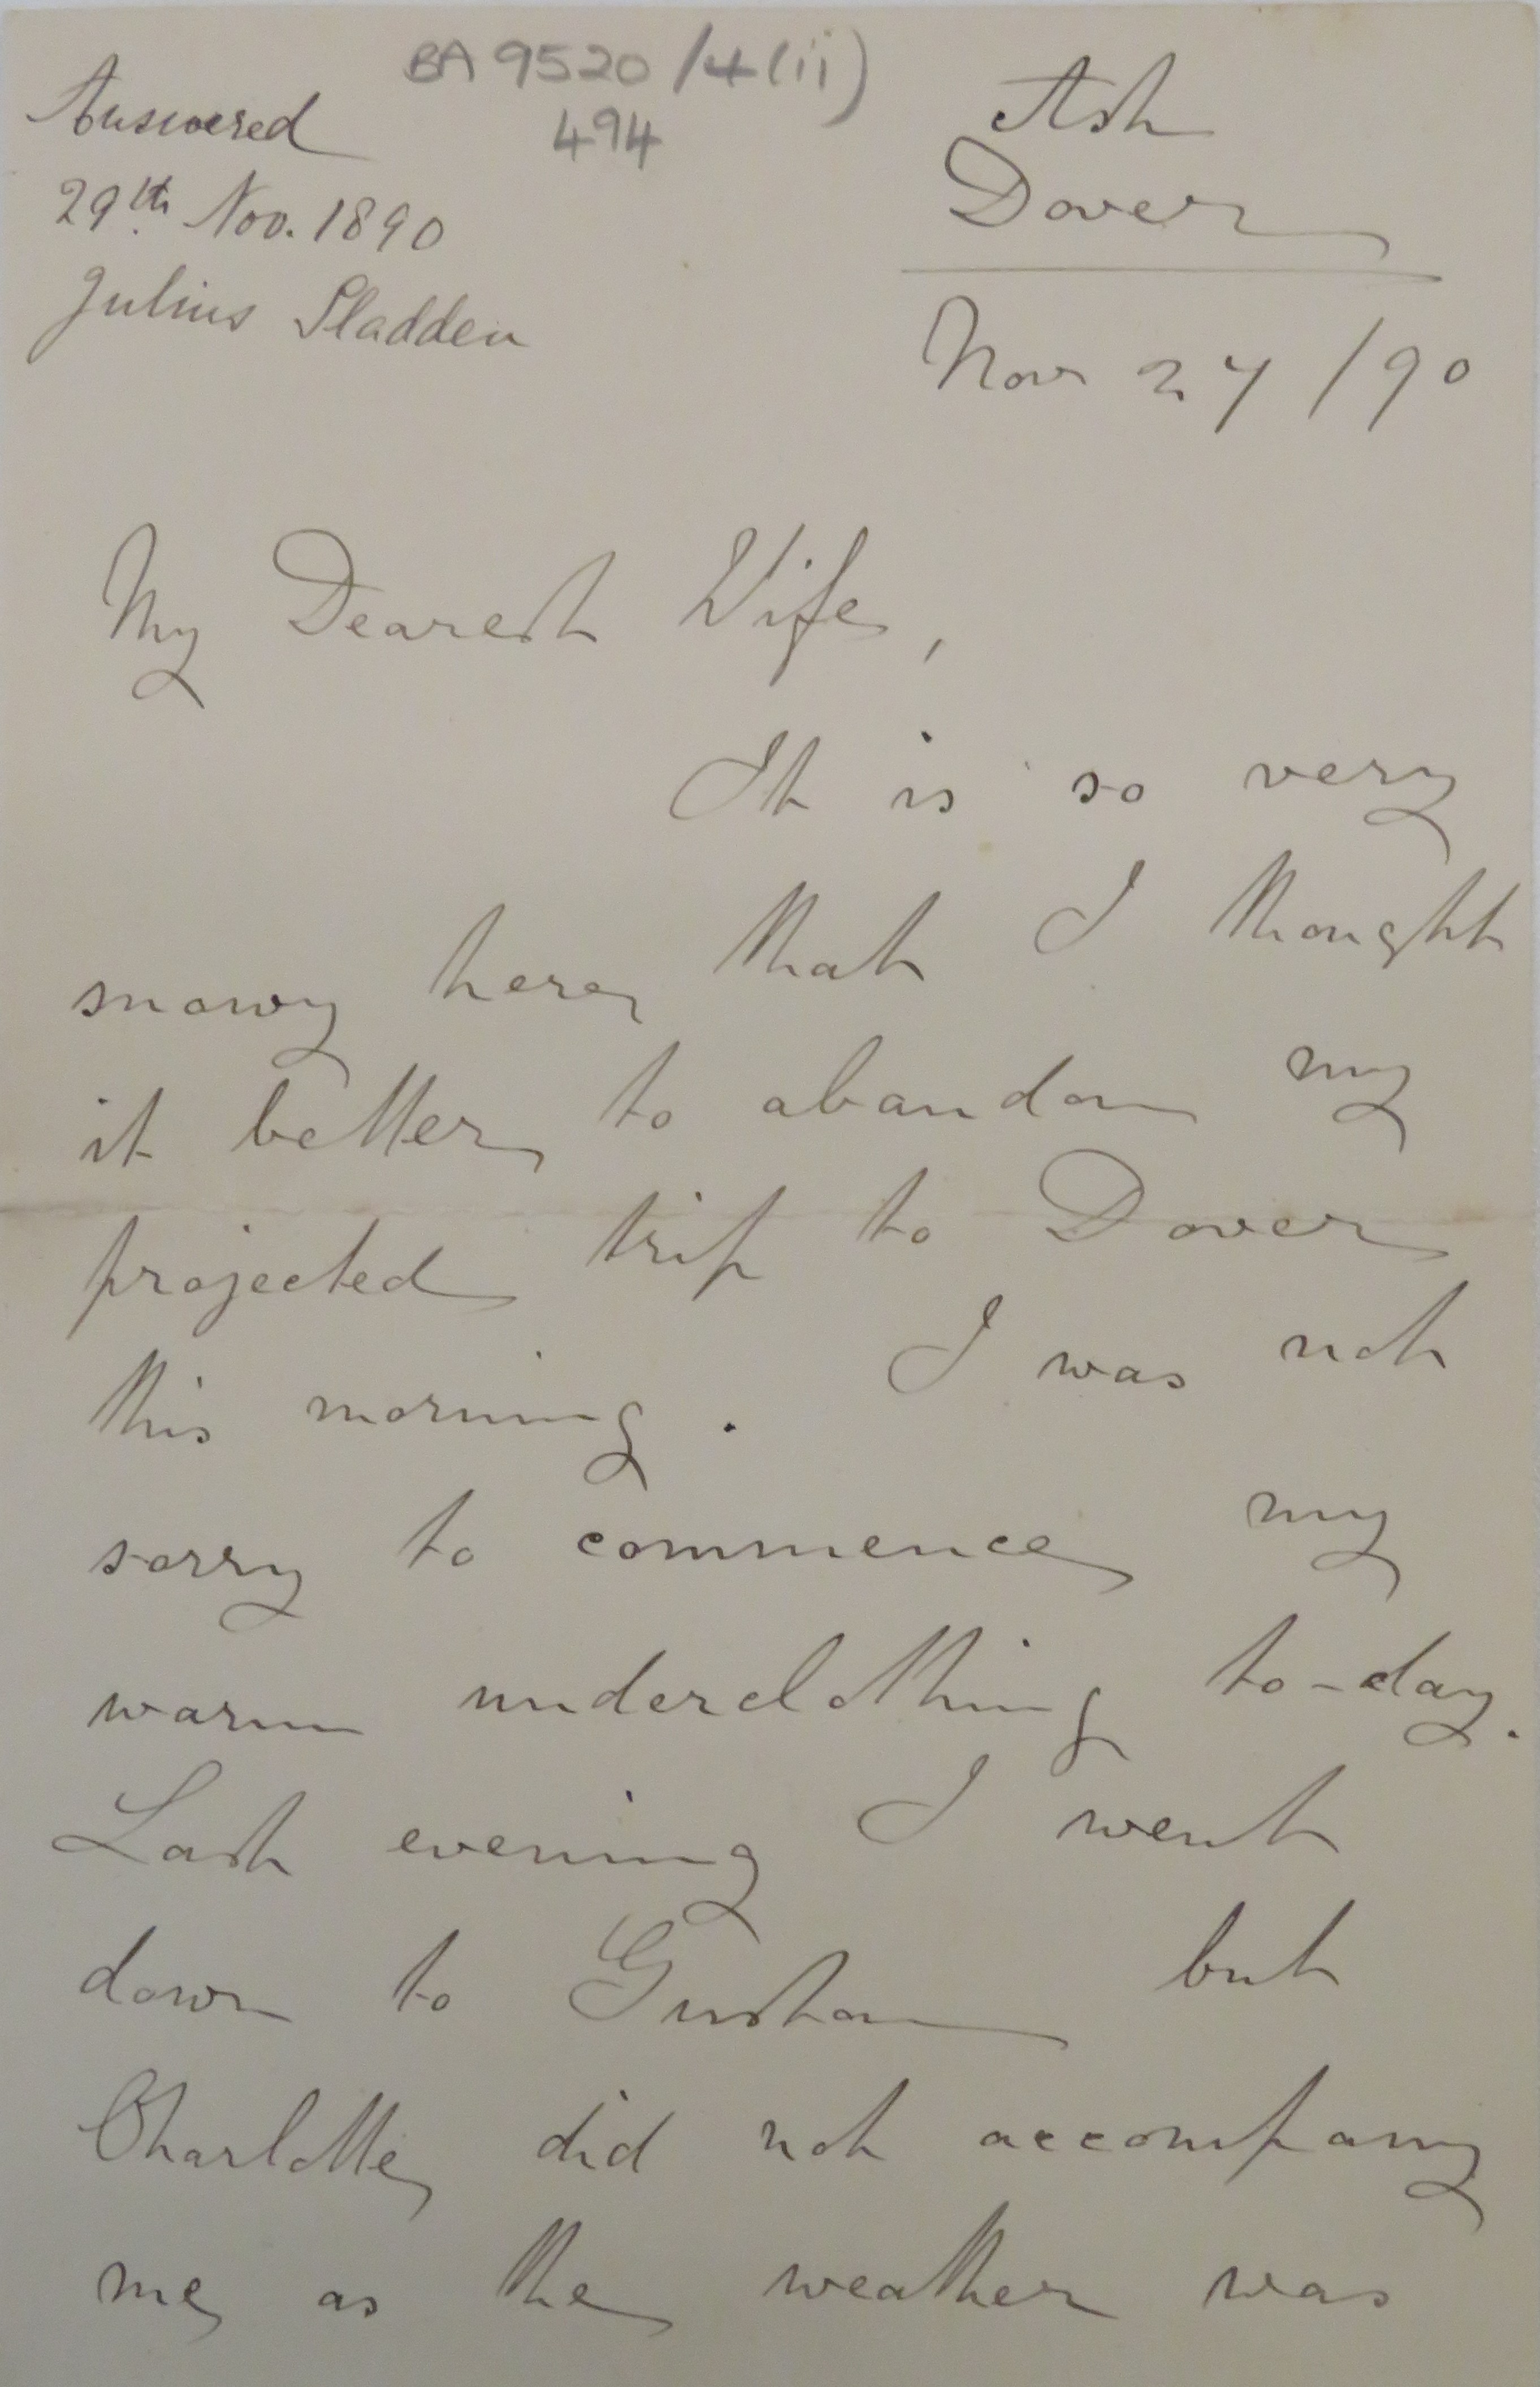 BA 9520/4(ii)
494
Answered
29th. Nov. 1890
Julius Sladden
Ash
Dover
Nov 27/90
My Dearest Wife,
It is so very
snowy here that I thought
it better to abandon my
projected trip to Dover
this morning. I was not
sorry to commence my
warm underclothing to-day.
Last evening I went
down to Guston but
Charlotte did not accompany
me as the weather was